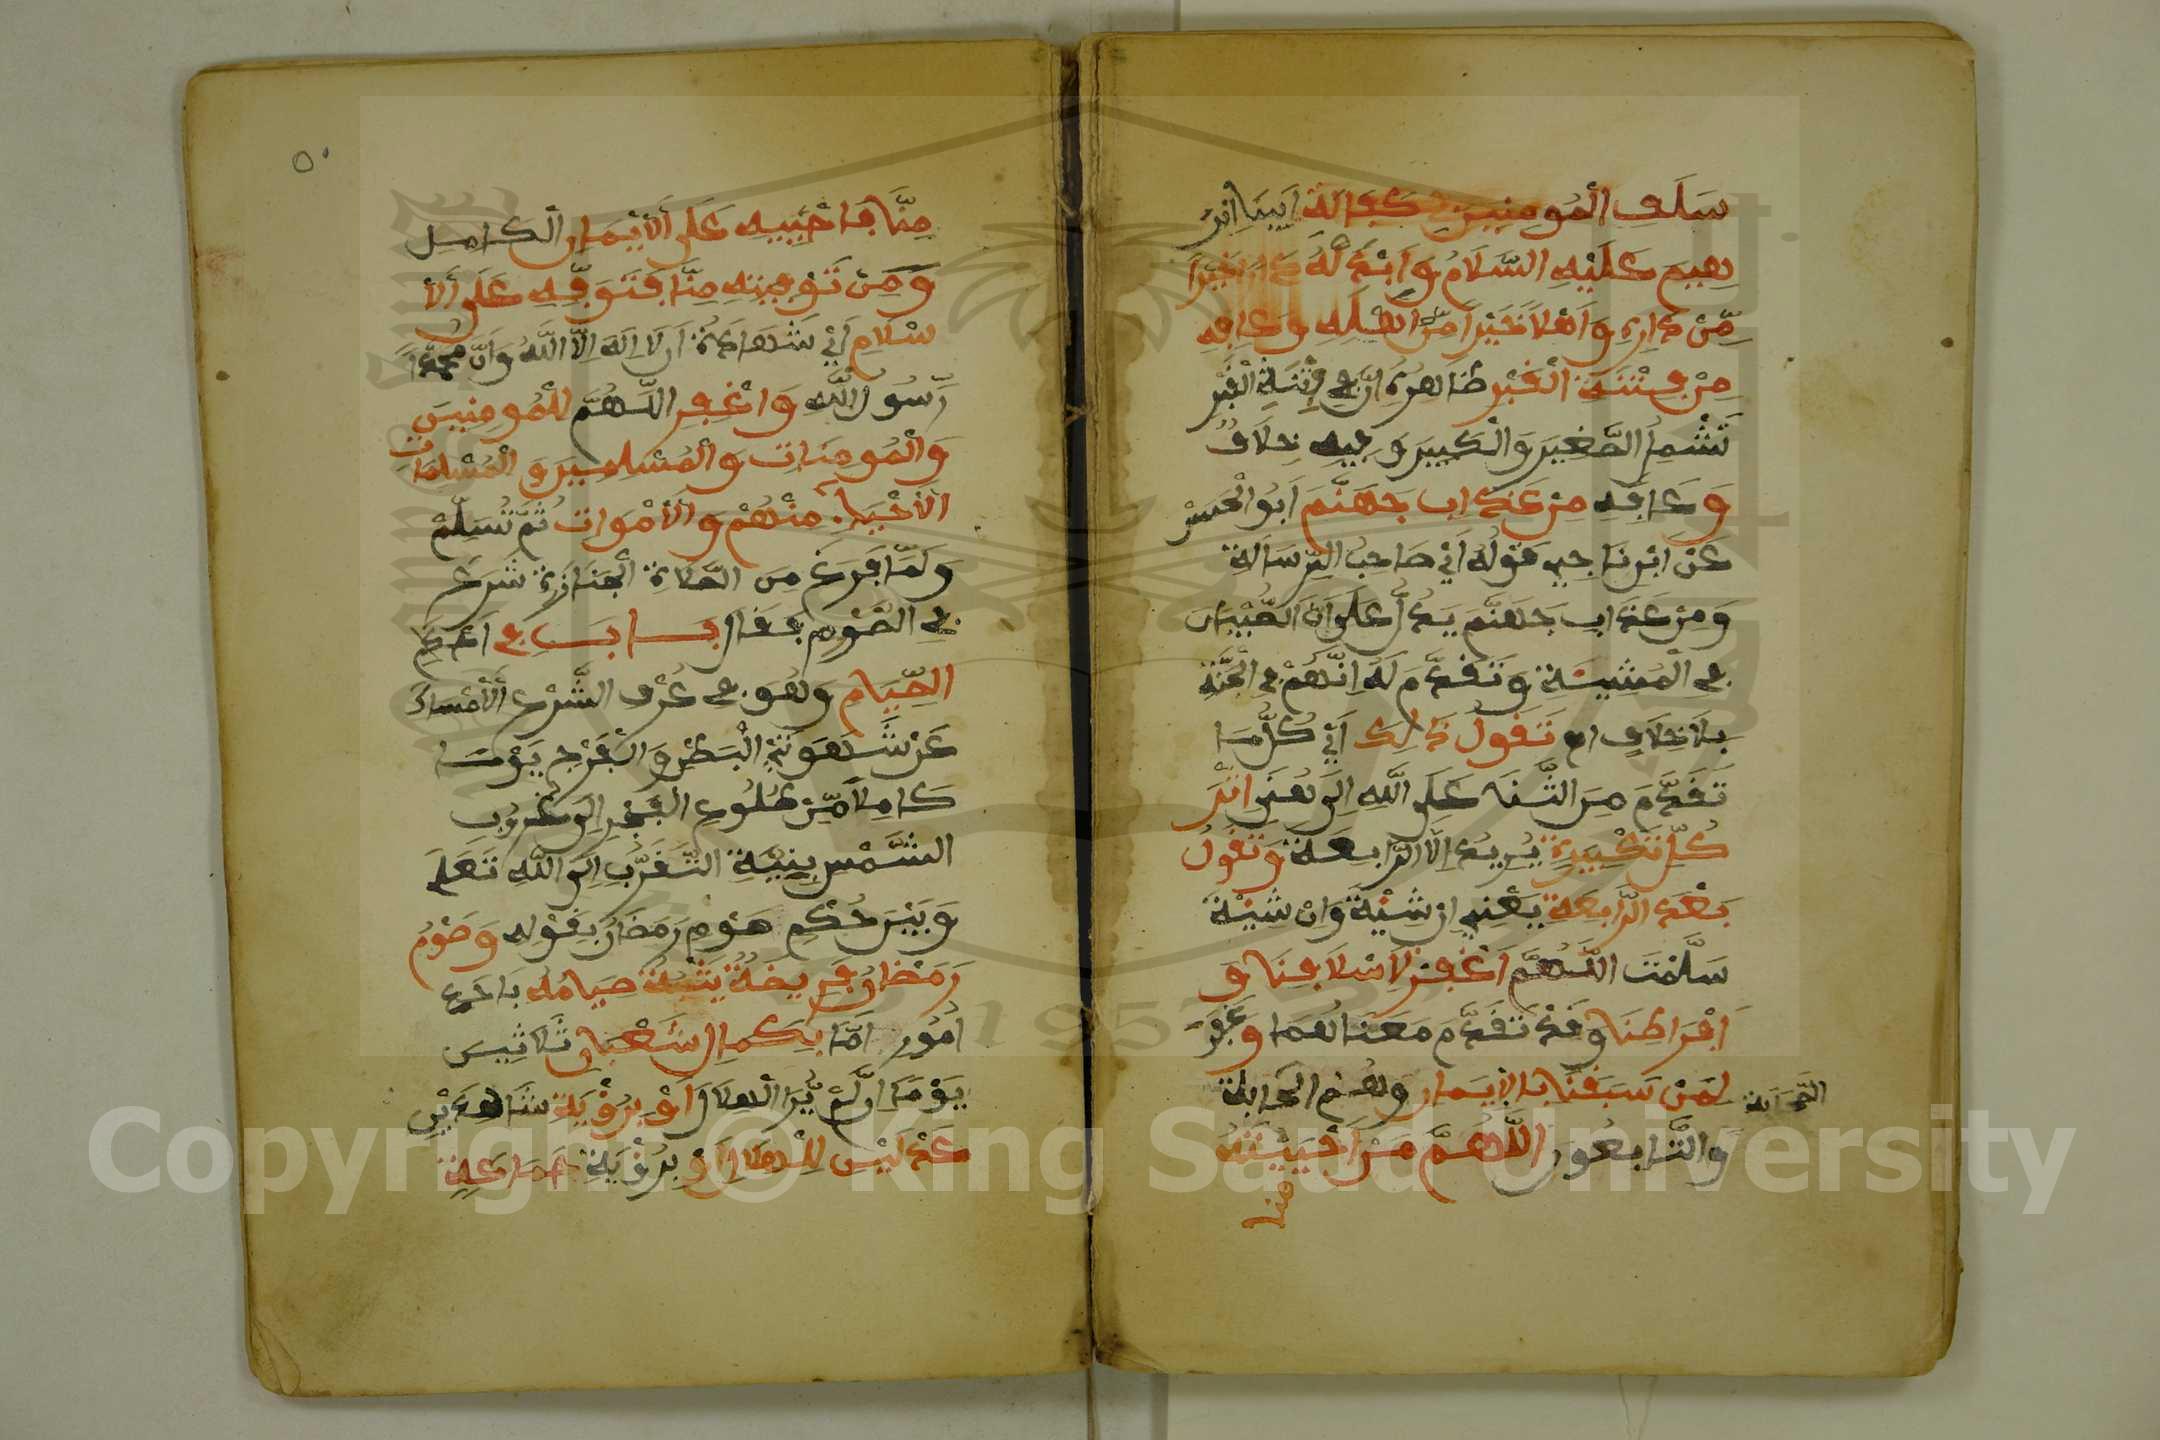 سَلَفِ الْمُومِنِينَ فِي كَفَالَةِ أَبِينَا إِبْرَ
هِيمَ عَلَيْهِ السَّلَامُ وَأَبْدِلْهُ دَارًا خَيْرًا
مِّنْ دَارِهِ وَأَهْلًا خَيْرًا مِّنْ أَهْلِهِ وَعَافِهِ
مِنْ فِتْنَةِ الْقَبْرِ ظَاهِرُهُ أَنَّ فِتْنَةَ الْقَبْرِ
تَشْمَلُ الصَّغِيرَ وَالْكَبِيرَ وَفِيهِ خِلَافٌ
وَعَافِهِ مِنْ عَذَابِ جَهَنَّمَ أَبُو الْحَسَنْ
عَنِ ابْنِ نَاجِي قَوْلُهُ أَيْ صَاحِبُ الرِّسَالَةِ
وَمِنْ عَذَابِ جَهَنَّمَ يَدُلُّ عَلَى أَنَّ الصِّبْيَانَ
فِي الْمَشِيئَةِ وَتَقَدَّمَ لَهُ أَنَّهُمْ فِي الْجَنَّةِ
بِلَا خِلَافٍ اهـ تَقُولُ ذَلِكَ أَيْ كُلَّ مَا
تَقَدَّمَ مِنَ الثَّنَا عَلَى اللَّهِ إِلَى هُنَا إِثْرَ
كُلِّ تَكْبِيرَةٍ يُرِيدُ إِلَّا الرَّابِعَةَ وَتَقُولُ
بَعْدَ الرَّابِعَةِ يَعْنِي إِنْ شِئْتَ وَإِنْ شِئْتَ
سَلَّمْتَ اللَّهُمَّ اغْفِرْ لِأَسْلَافِنَا وَ
أَفْرَاطِنَا وَقَدْ تَقَدَّمَ مَعْنَاهُمَا وَاغْفِرْ
لِمَنْ سَبَقَنَا بِالْإِيمَانِ وَهُمُ الصَّحَابَةُ
الصَّحَابَة
وَالتَّابِعُونَ اللَّهُمَّ مَنْ أَحْيَيْتَهُ
منا
٥٠
مِنَّا فَأَحْيِيهِ عَلَى الْإِيْمَانِ الْكَامِلِ
وَمَنْ تَوَفَّيْتَهُ مِنَّا فَتَوَفَّهِ عَلَى الْإِ
سْلَامِ أَيْ شَهَادَةُ أَن لَا إِلَهَ إِلَّا اللَّهُ وَأَنَّ مُحَمَّدًا
رَّسُولُ اللَّهِ وَاغْفِرِ اللَّهُمَّ لِلْمُومِنِينَ
وَالْمُومِنَاتِ وَالْمُسْلِمِينَ وَالْمُسْلِمَاتِ
الْأَحْيَاءِ مِنْهُمْ وَالْأَمْوَاتِ ثُمَّ تُسَلِّمْ
وَلَمَّا فَرَغَ مِنَ الصَّلَاةِ الْجَنَازَةِ شَرَعَ
فِي الصَّوْمِ فَقَالَ بَابٌ فِي أَحْكَامِ
الصِّيَامِ وَهُوَ فِي عُرْفِ الشَّرْعِ الْإِمْسَاكُ
عَنْ شَهْوَتَيِ الْبَطْنِ وَالْفَرْجِ يَوْمًا
كَامِلًا مِّنْ طُلُوعِ الْفَجْرِ إِلَى غُرُوبِ
الشَّمْسِ بِنِيَّةِ التَّقَرُّبِ إِلَى اللَّهِ تَعَلَى
وَبَيَّنَ حُكْمَ صَوْمِ رَمَضَانَ بِقَوْلِهِ وَصَوْمُ
رَمَضَانَ فَرِيضَةٌ يَثْبُتُ صِيَامُهُ بِأَحَدِ
أُمُورٍ أَمَّا بِكَمَالِ شَعْبَانَ ثَلَاثِينَ
يَوْمًا إِن لَّمْ يُرَ الْهِلَالُ أَوْ بِرُؤْيَةِ شَاهِدَيْنِ
عَدْلَيْنِ لِلْهِلَالِ أَوْ بِرُؤْيَةِ جَمَاعَةٍ